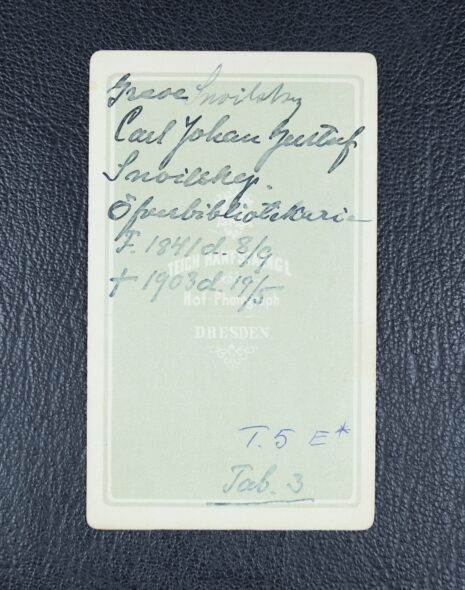 Greve Snoilsky
Carl Johan Gustaf
Snoilsky.
Öfverbibliotekarie
F. 1841 d. 8/9
TEICH HANFSTAENGL
† 1903 d. 19/5
Hof-Photograph
DRESDEN
T.5 E*
Tab. 3